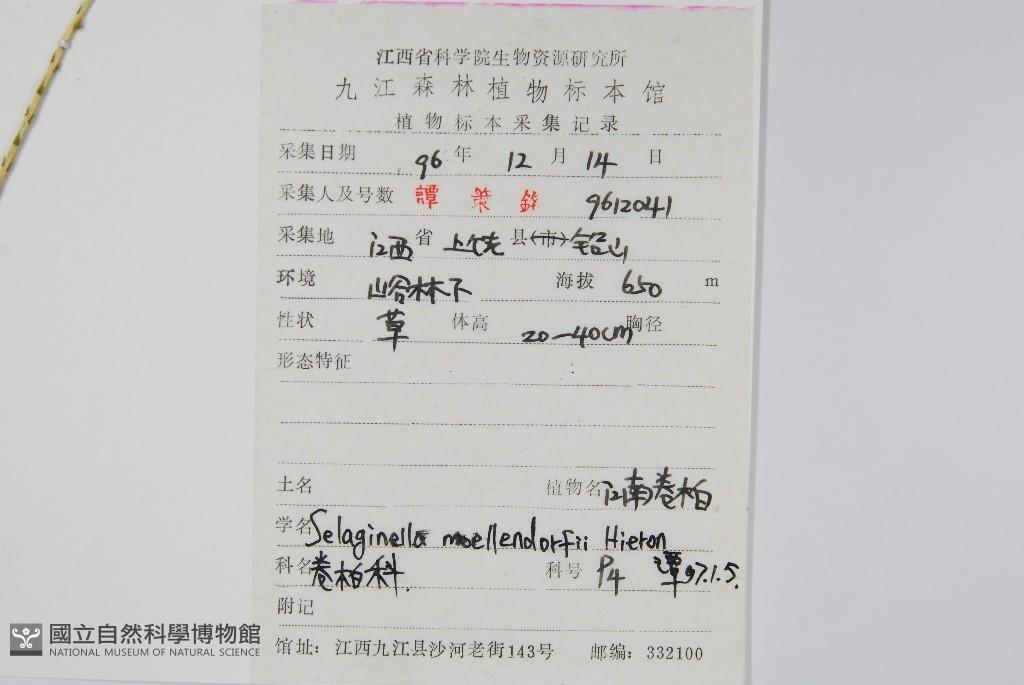 江西省科学院生物资源研究所
九江森林植物标本馆
植物标本采集记录
采集日期 96年 12月 14日
采集人及号数 譚策銘 9612041
采集地 江西省 上饶县(市)铅山
环境 山谷林下 海拔 650 m
性状 草 体高 20—40cm 胸径
形态特征
土名 植物名 江南卷柏
学名 Selaginella moellendorfii Hieron
科名 卷柏科. 科号 P4 譚97.1.5.
附记
馆址: 江西九江县沙河老街143号 邮编: 332100
國立自然科學博物館
NATIONAL MUSEUM OF NATURAL SCIENCE